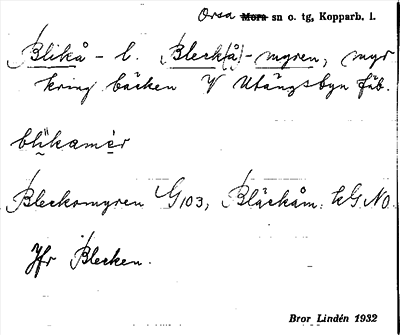 Orsa Mora sn o. tg, Kopparb. l.
Blikå - l. Bleck(å)-myren, myr
kring bäcken V Utängsbyn fäb.
blikamer
Bleckomyren G 103, Bläckåm. kG. NO.
Jfr Blecken.
Bror Lindén 1932